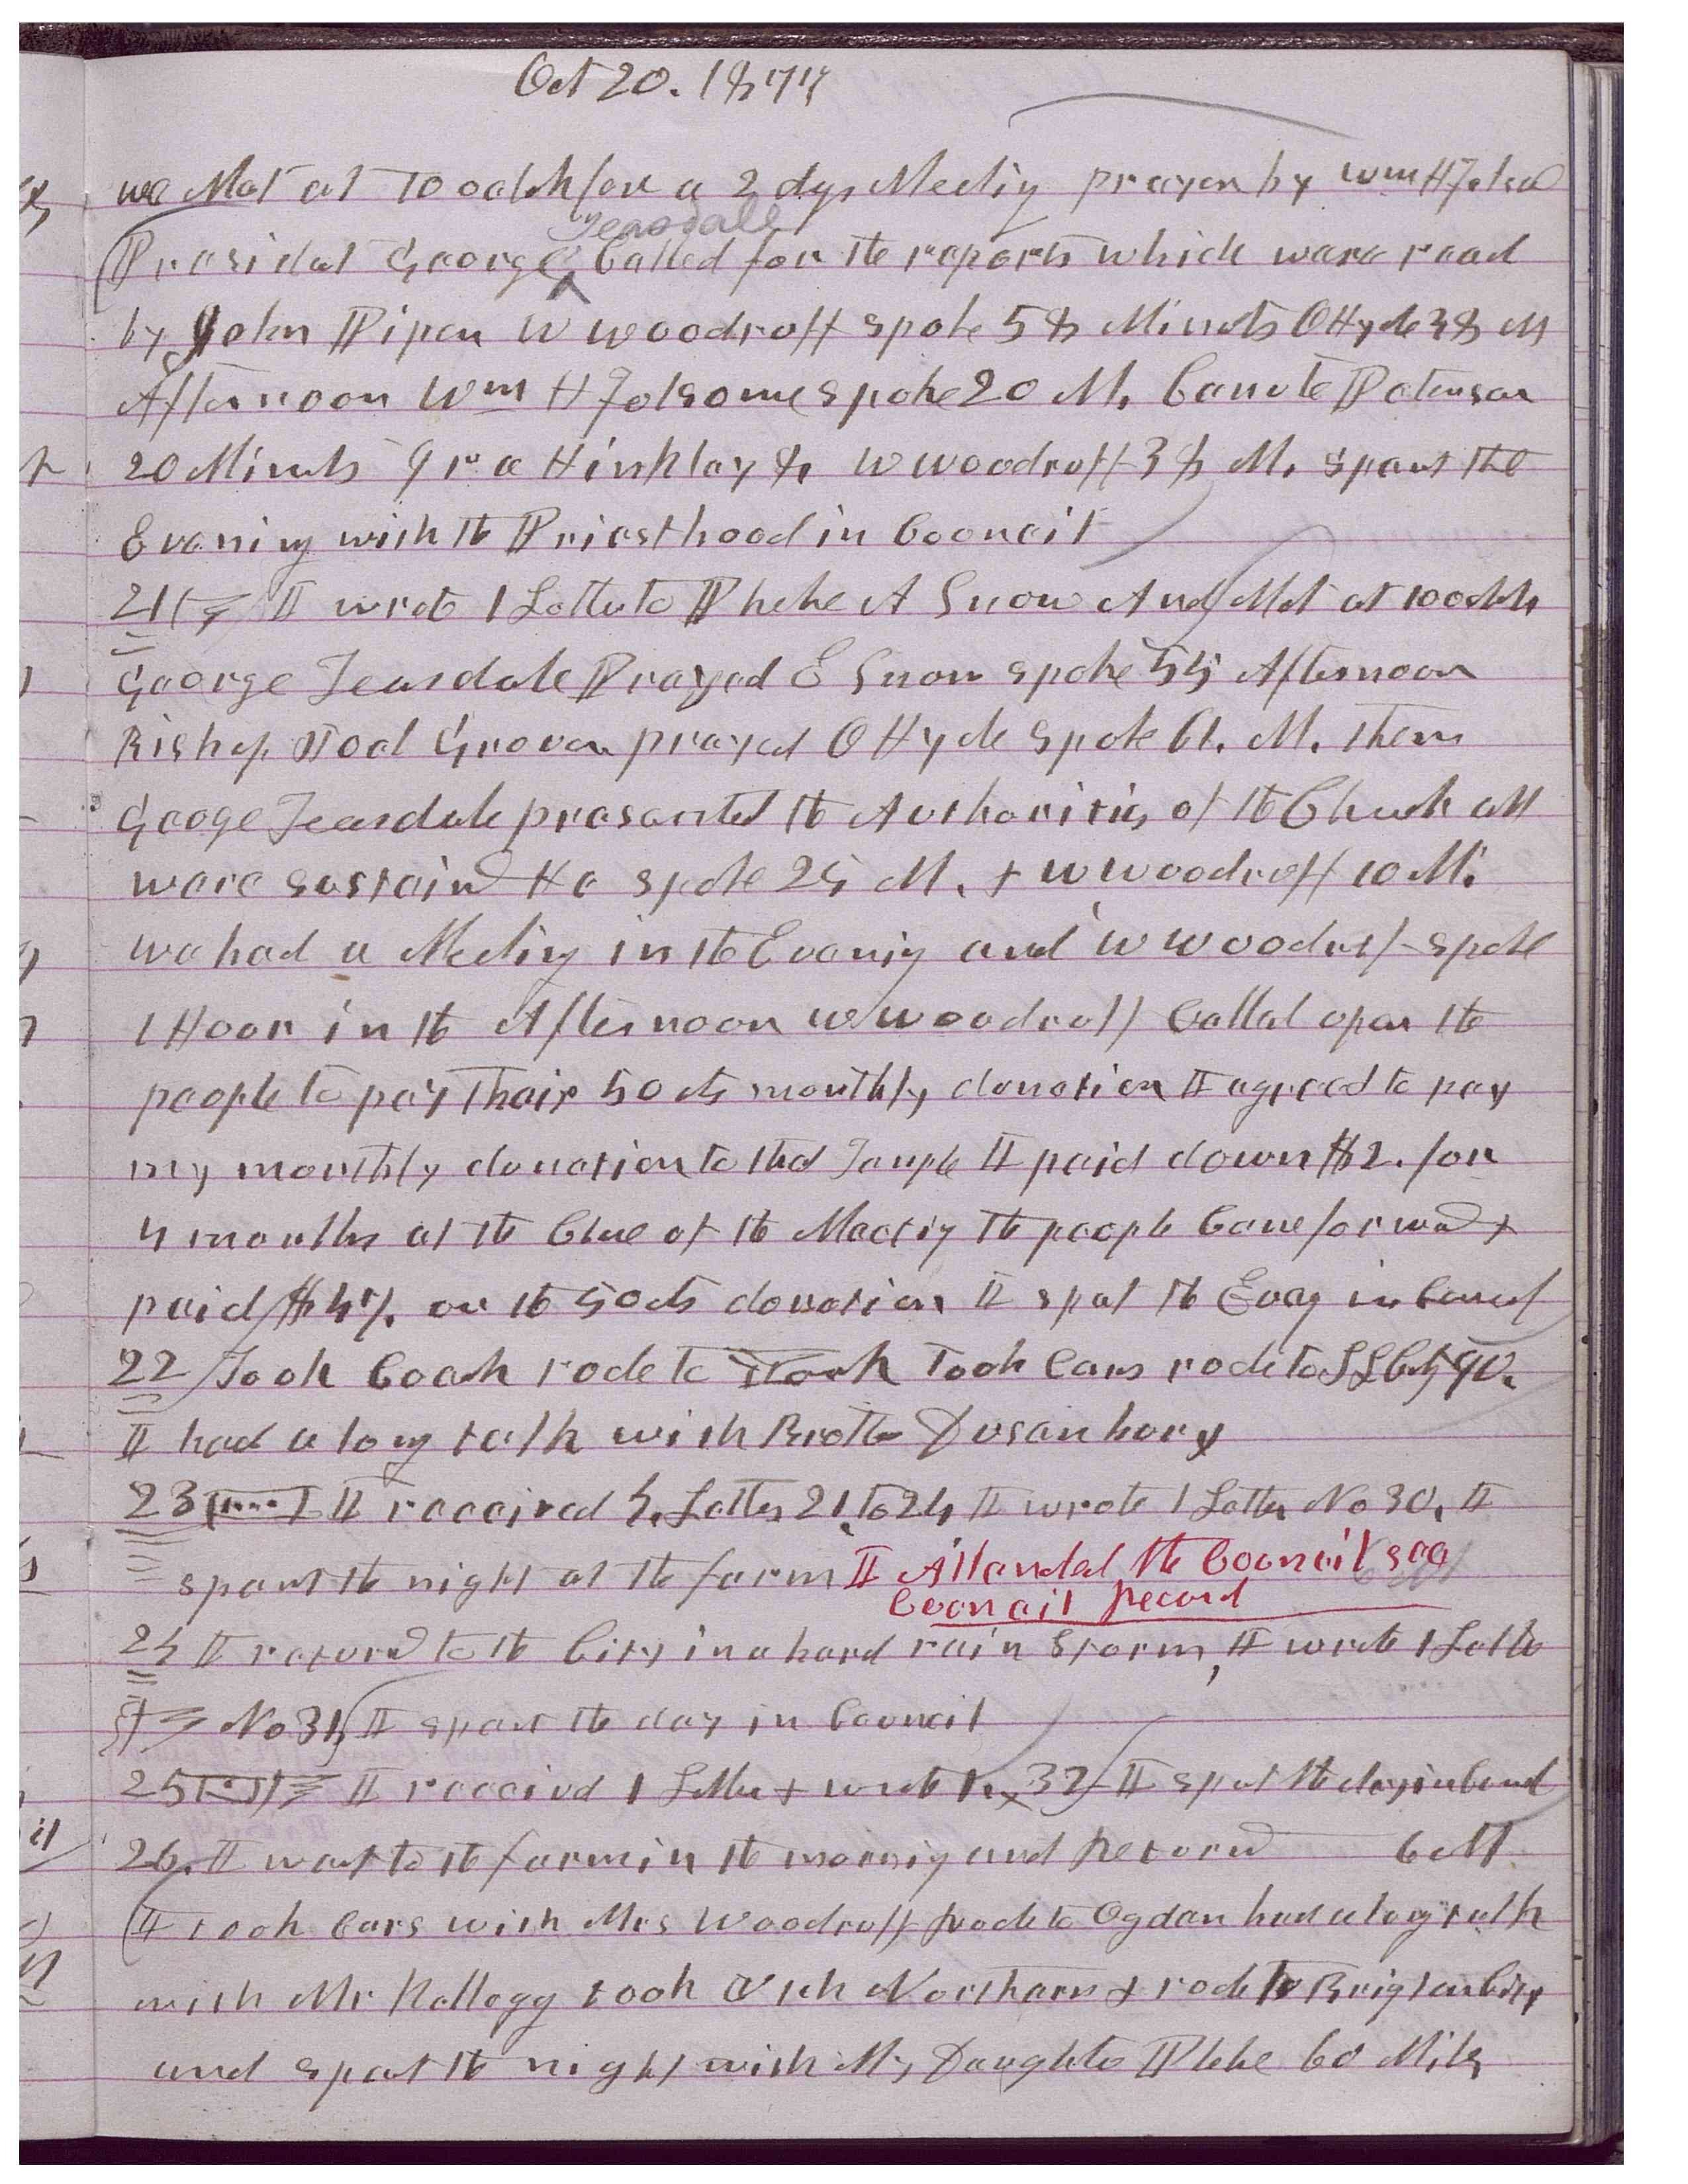 Oct 20. 1877
we Met at 10 oclok for a 2 dys Meetig prayer by Wm H Folsom
Teasdale
Presidet George ^ Called for the reports which were read
by John Pipen W Woodruff spoke 58 Minuts O Hyde 38 M
Afternoon Wm H Folsome spoke 20 M. Canute Peterson
20 Minuts Ira Hinkley 8, W Woodruff 38 M. spent the
Evening with the Priesthood in Councit
21 I wrote 1 Letter to Phebe A Snow And Met at 10 oclok
George Teasdale Prayed E Snow spoke 55 Afternoon
Bishop Joel Grover prayed O Hyde Spoke 61. M. Then
Geoge Teasdale presented the Authorities of the Church all
were sustaind He spoke 25 M. + W Woodruff 10 M.
we had a Meetig in the Evenig and W Woodruf spoke
1 Hour in the Afternoon W Woodruff Called upon the
people to pay their 50 cts monthly donation I agreed to pay
my monthly donation to the Temple I paid down $2. for
4 months at the Close of the Meetig the people Came forwad +
paid $47. on the 50 cts donation I spet the Eveg in Councl
22 Took Coach rode to York Took Cars rode to SLCity 90.
I had a long talk with Brother Dusenbery
23 I received 4. Letters 21. to 24, I wrote 1 Letter No 30, I
spent the night at the farm I Attended the Council see
Council Record
24 I returd to the City in a hard rain storm, I wrote 1 Letter
No 31, I spent the day in Council
25 I receivd 1 Letter + wrote 1, 32 I spet the day in Councl
26. I went to the farm in the mornig and Returd 6 M
I took Cars with Mrs Woodruff rode to Ogden had a log talk
with Mr Kellogg took Utah Northern + rode to Brighan City
and spet the night with My Daughter Phebe 60 Miles